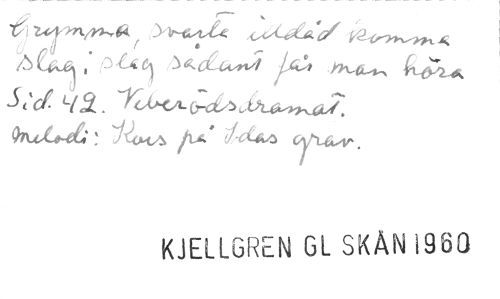 Grymma, svarta illdåd komma
slag i slag sådant får man höra
Sid. 42. Veberödsdramat.
Melodi: Kors på Idas grav.
KJELLGREN GL SKÅN 1960